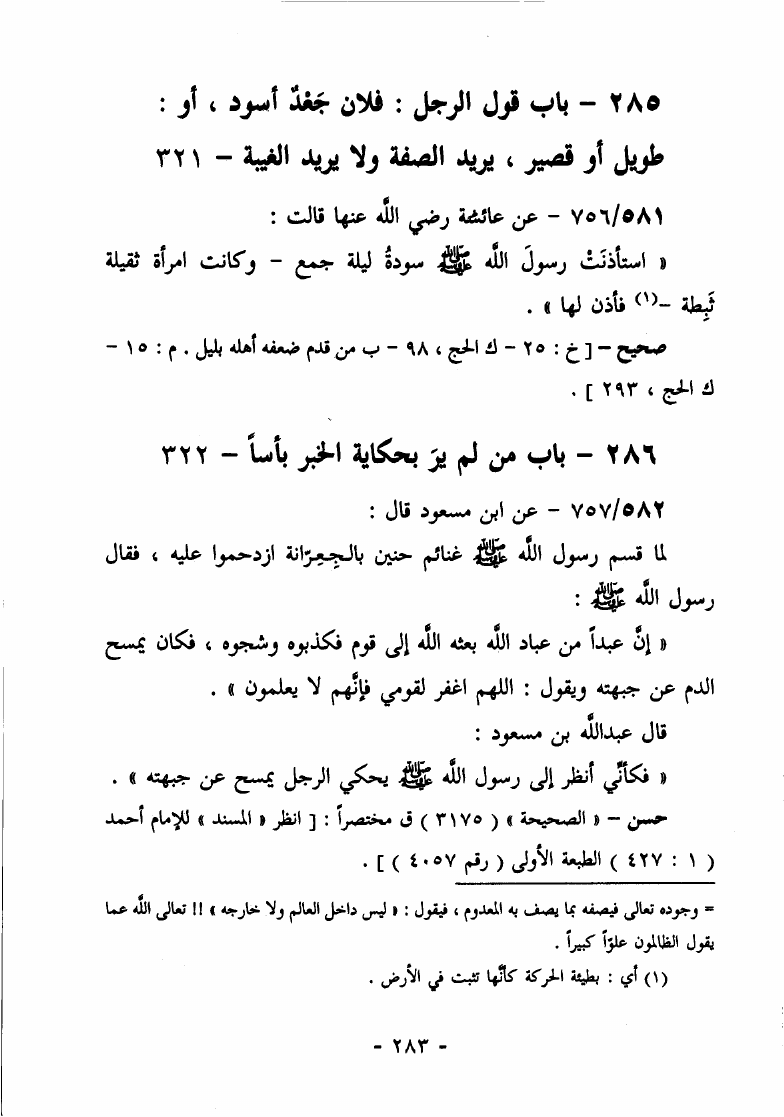 ٢٨٥ – باب قول الرجل : فلان جَعْدٌ أسود ، أو :
طويل أو قصير ، يريد الصفة ولا يريد الغيبة – ٣٢١
٧٥٦/٥٨١ – عن عائشة رضي اللَّه عنها قالت :
« استأذنَتْ رسولَ اللَّه ﷺ سودةُ ليلة جمع – وكانت امرأة ثقيلة
ثَبِطة –(١) فأذن لها » .
صحيح – [ خ : ٢٥ – ك الحج ، ٩٨ – ب من قدم ضعفه أهله بليل . م : ١٥ –
ك الحج ، ٢٩٣ ] .
٢٨٦ – باب من لم يرَ بحكاية الخبر بأساً – ٣٢٢
٧٥٧/٥٨٢ – عن ابن مسعود قال :
لما قسم رسول اللَّه ﷺ غنائم حنين بالجِعِرّانة ازدحموا عليه ، فقال
رسول اللَّه ﷺ :
« إنَّ عبداً من عباد اللَّه بعثه اللَّه إلى قوم فكذبوه وشجوه ، فكان يمسح
الدم عن جبهته ويقول : اللهم اغفر لقومي فإنَّهم لا يعلمون » .
قال عبداللَّه بن مسعود :
« فكأنّي أنظر إلى رسول اللَّه ﷺ يحكي الرجل يمسح عن جبهته » .
حسن – « الصحيحة » ( ٣١٧٥ ) ق مختصراً : [ انظر « المسند » للإمام أحمد
( ١ : ٤٢٧ ) الطبعة الأولى ( رقم ٤٠٥٧ ) ] .
= وجوده تعالى فيصفه بما يصف به المعدوم ، فيقول : « ليس داخل العالم ولا خارجه » !! تعالى اللَّه عما
يقول الظالمون علوّاً كبيراً .
(١) أي : بطيئة الحركة كأنَّها تثبت في الأرض .
- ٢٨٣ -